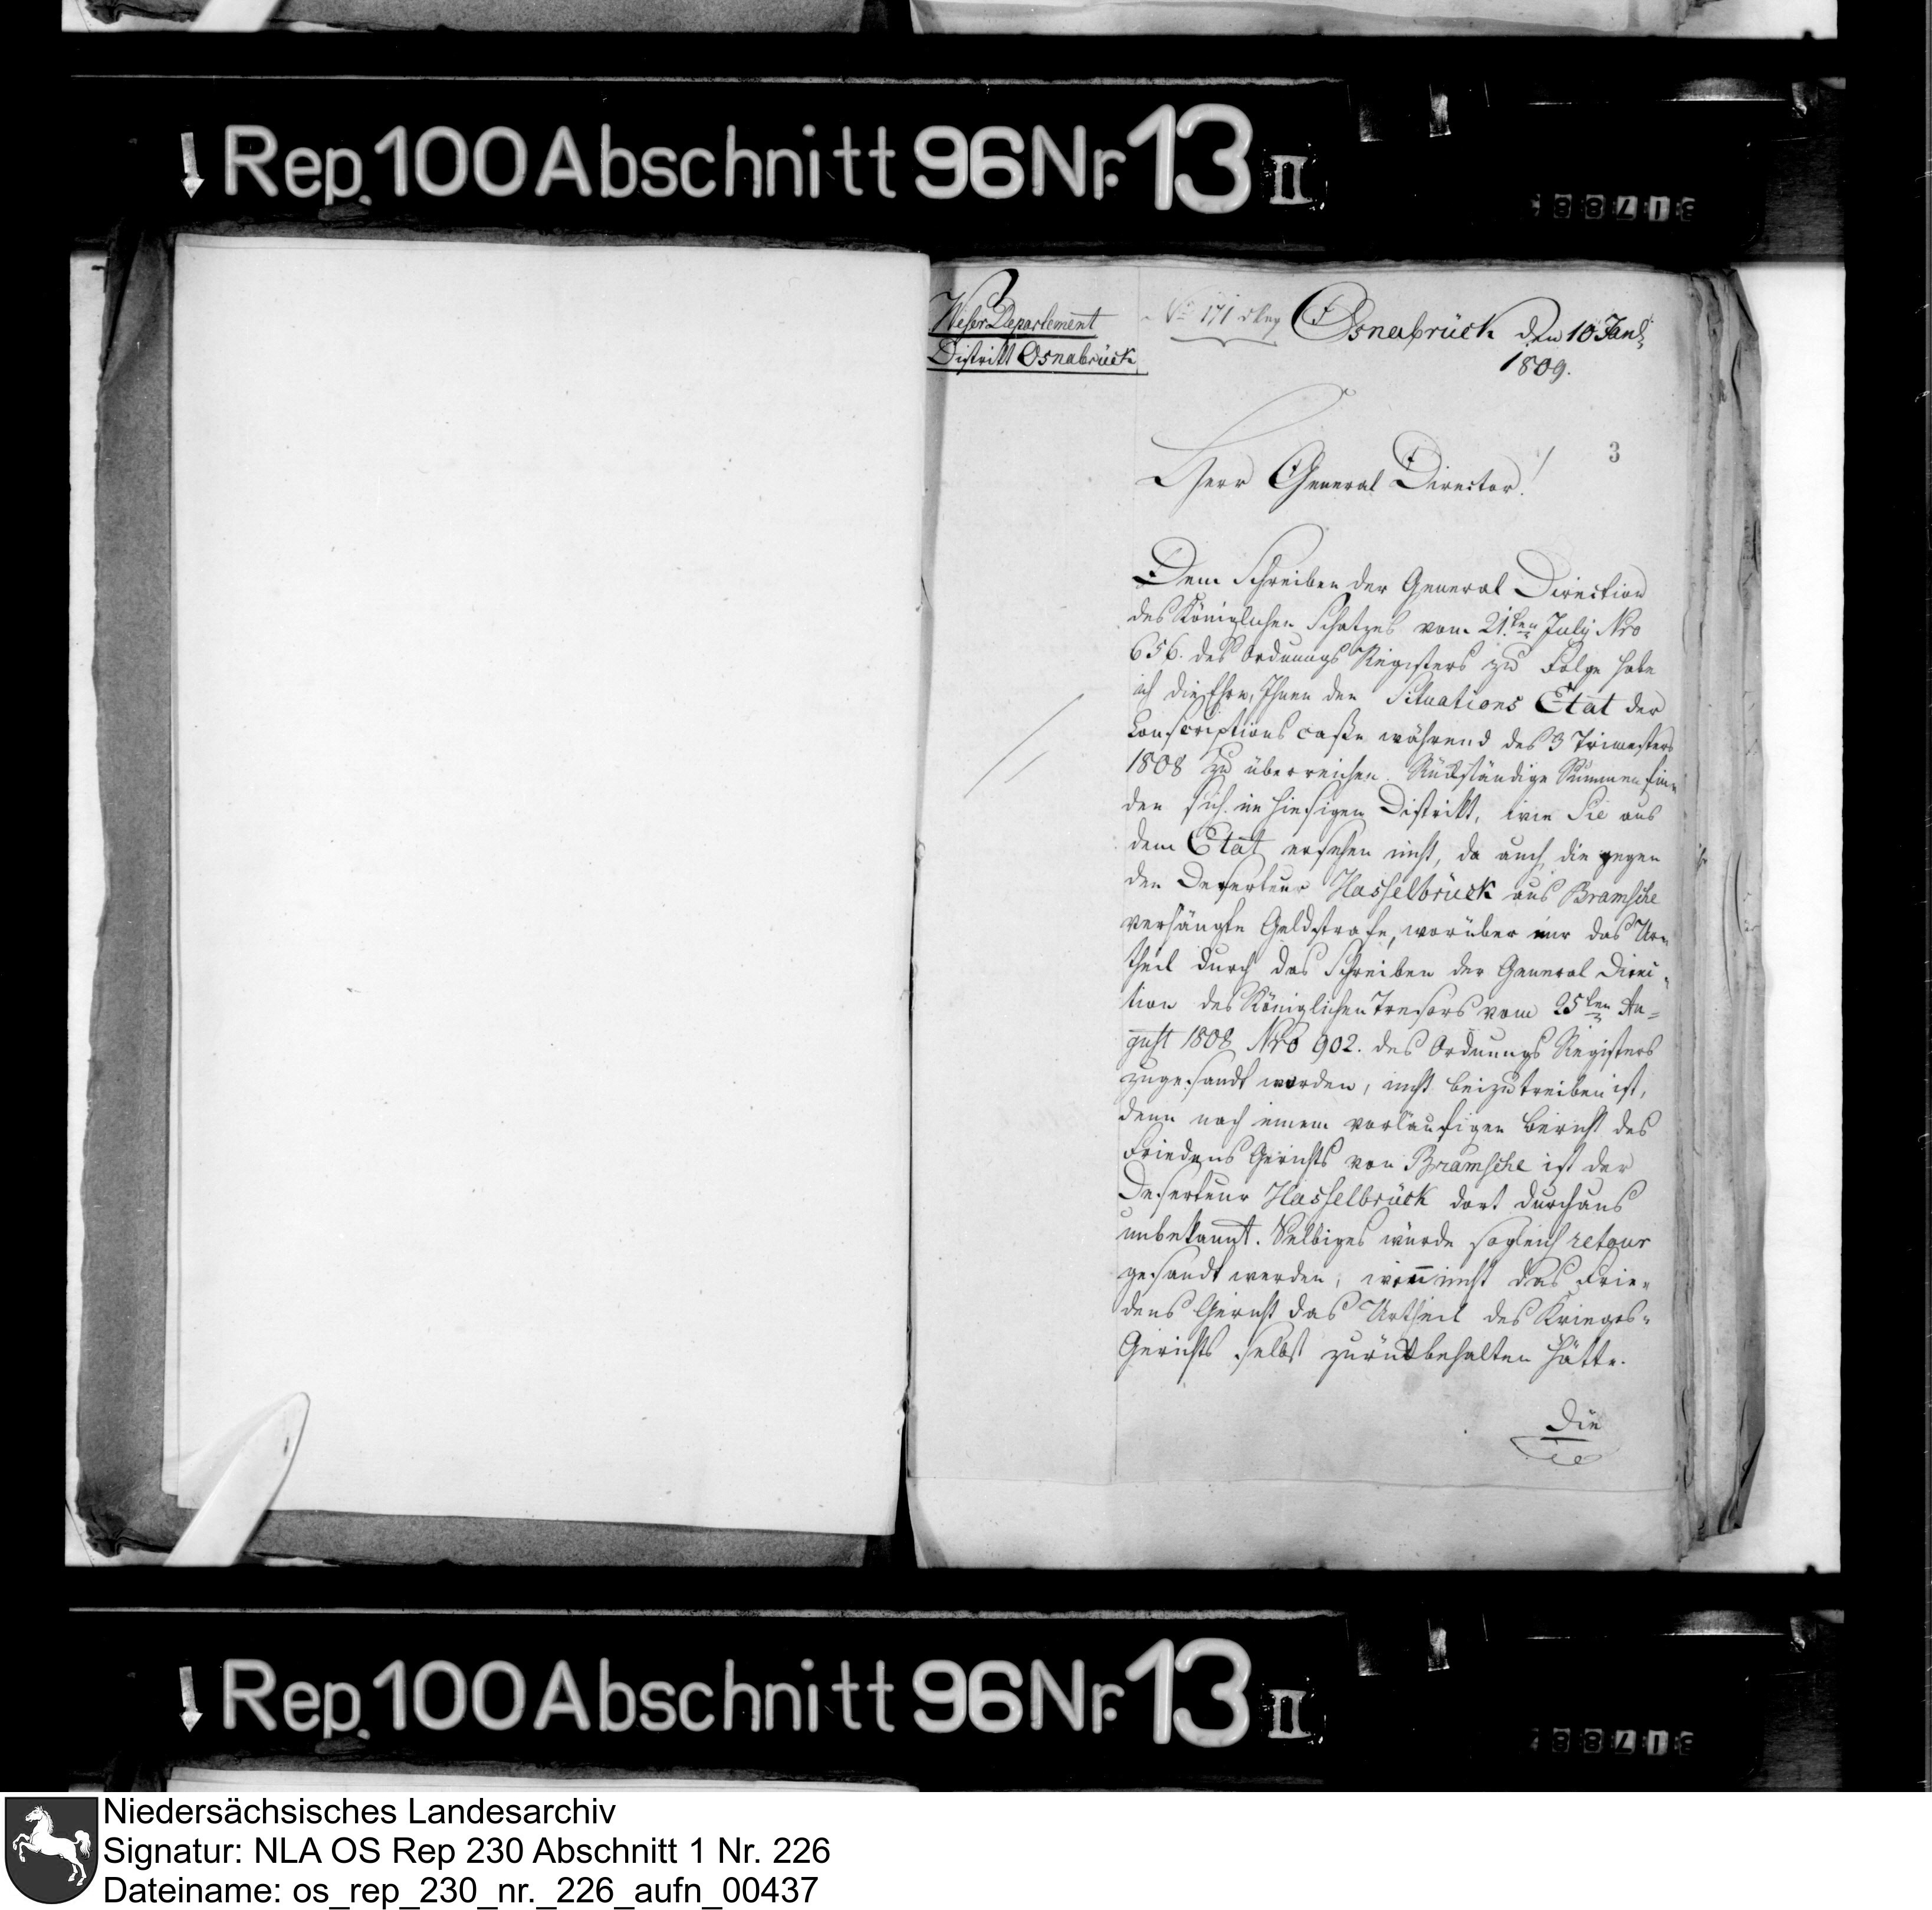 Rep. 100 Abschnitt 96 Nr. 13 II
31788
Weser Departement
Distrikt Osnabrück
No 171
Osnabrück den 10 Janr
1809.
3
Herr General Director!
Dem Schreiben der General Direction
des Königlichen Schatzes vom 21ten July Nro
656. des Ordnungs Registers zu Folge habe
ich die Ehre, Ihnen den Situations Etat der
Conscriptions casse während des 3 Trimesters
1808 zu überreichen. Rückständige Summen fin-
den sich im hiesigen Distrikt, wie Sie aus
dem Etat ersehen nicht, da auch die gegen
den Deserteur Hasselbrück aus Bramsche
verhängte Geldstrafe, worüber mir das Ur-
theil durch das Schreiben der General Direc-
tion des Königlichen Tresors vom 25ten Au=
gust 1808 Nro 902. des Ordnungs Registers
zugesandt worden, nicht beizutreiben ist,
denn nach einem vorläufigen Bericht des
Friedens Gerichts von Bramsche ist der
Deserteur Hasselbrück dort durchaus
unbekannt. Selbiges würde sogleich retour
gesandt werden, wenn nicht das Frie-
dens Gericht das Urtheil des Krieges-
Gerichts selbst zurückbehalten hätte.
Die
Rep. 100 Abschnitt 96 Nr. 13 II
31788
Niedersächsisches Landesarchiv
Signatur: NLA OS Rep 230 Abschnitt 1 Nr. 226
Dateiname: os_rep_230_nr._226_aufn_00437